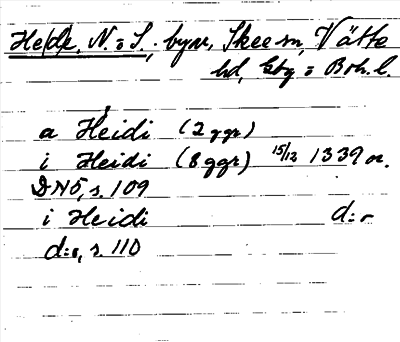 Hede, N. o S., byar, Skee sn, Vätte
hd, Gbg o Boh. l.
a Heidi (2 ggr)
i Heidi (8 ggr) 15/12 1339 or.
DN5, s. 109
i Heidi d:o
d:o, s. 110